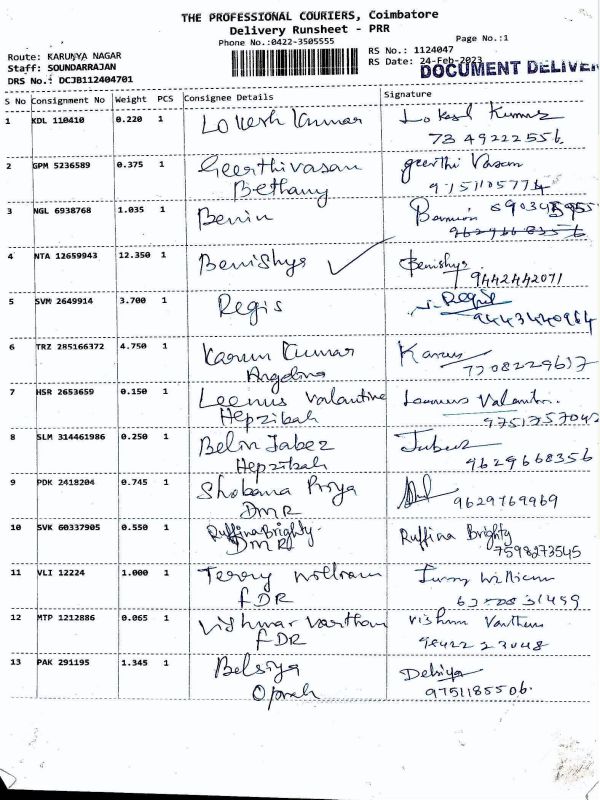 THE PROFESSIONAL COURIERS, Coimbatore
Delivery Runsheet - PRR
Phone No.:0422-3505555
Page No.:1
Route: KARUNYA NAGAR
RS No.: 1124047
Staff: SOUNDARRAJAN
RS Date: 24-Feb-2023
DRS No.: DCJB112404701
DOCUMENT DELIVER
S No Consignment No Weight PCS Consignee Details Signature
1 KDL 110410 0.220 1 Lokesh Kumar Lokesh Kumar
7349222556
2 GPM 5236589 0.375 1 Geerthivasan geerthi Vasan
Bethany 9751105774
3 NGL 6938768 1.035 1 Benin
9629668356
4 NTA 12659943 12.350 1 Benishys ✓ Benishys
9442442071
5 SVM 2649914 3.700 1 Regis
9443440964
6 TRZ 285166372 4.750 1 Karun Kumar
Angelina 7708229617
7 HSR 2653659 0.150 1 Leenus Valantine
Hepzibah 975175704
8 SLM 314461986 0.250 1 Belin Jabez Jabez
Hepzibah 9629668356
9 PDK 2418204 0.745 1 Shobana Priya
DMR 9629769969
10 SVK 60337905 0.550 1 Ruffina Brighty Ruffina Brighty
DMR 7598273545
11 VLI 12224 1.000 1 Terry William
FDR
12 MTP 1212886 0.065 1 Vishnu Varthan Vishnu Varthan
FDR
13 PAK 291195 1.345 1 Belsiya
Oprah 9751185506.